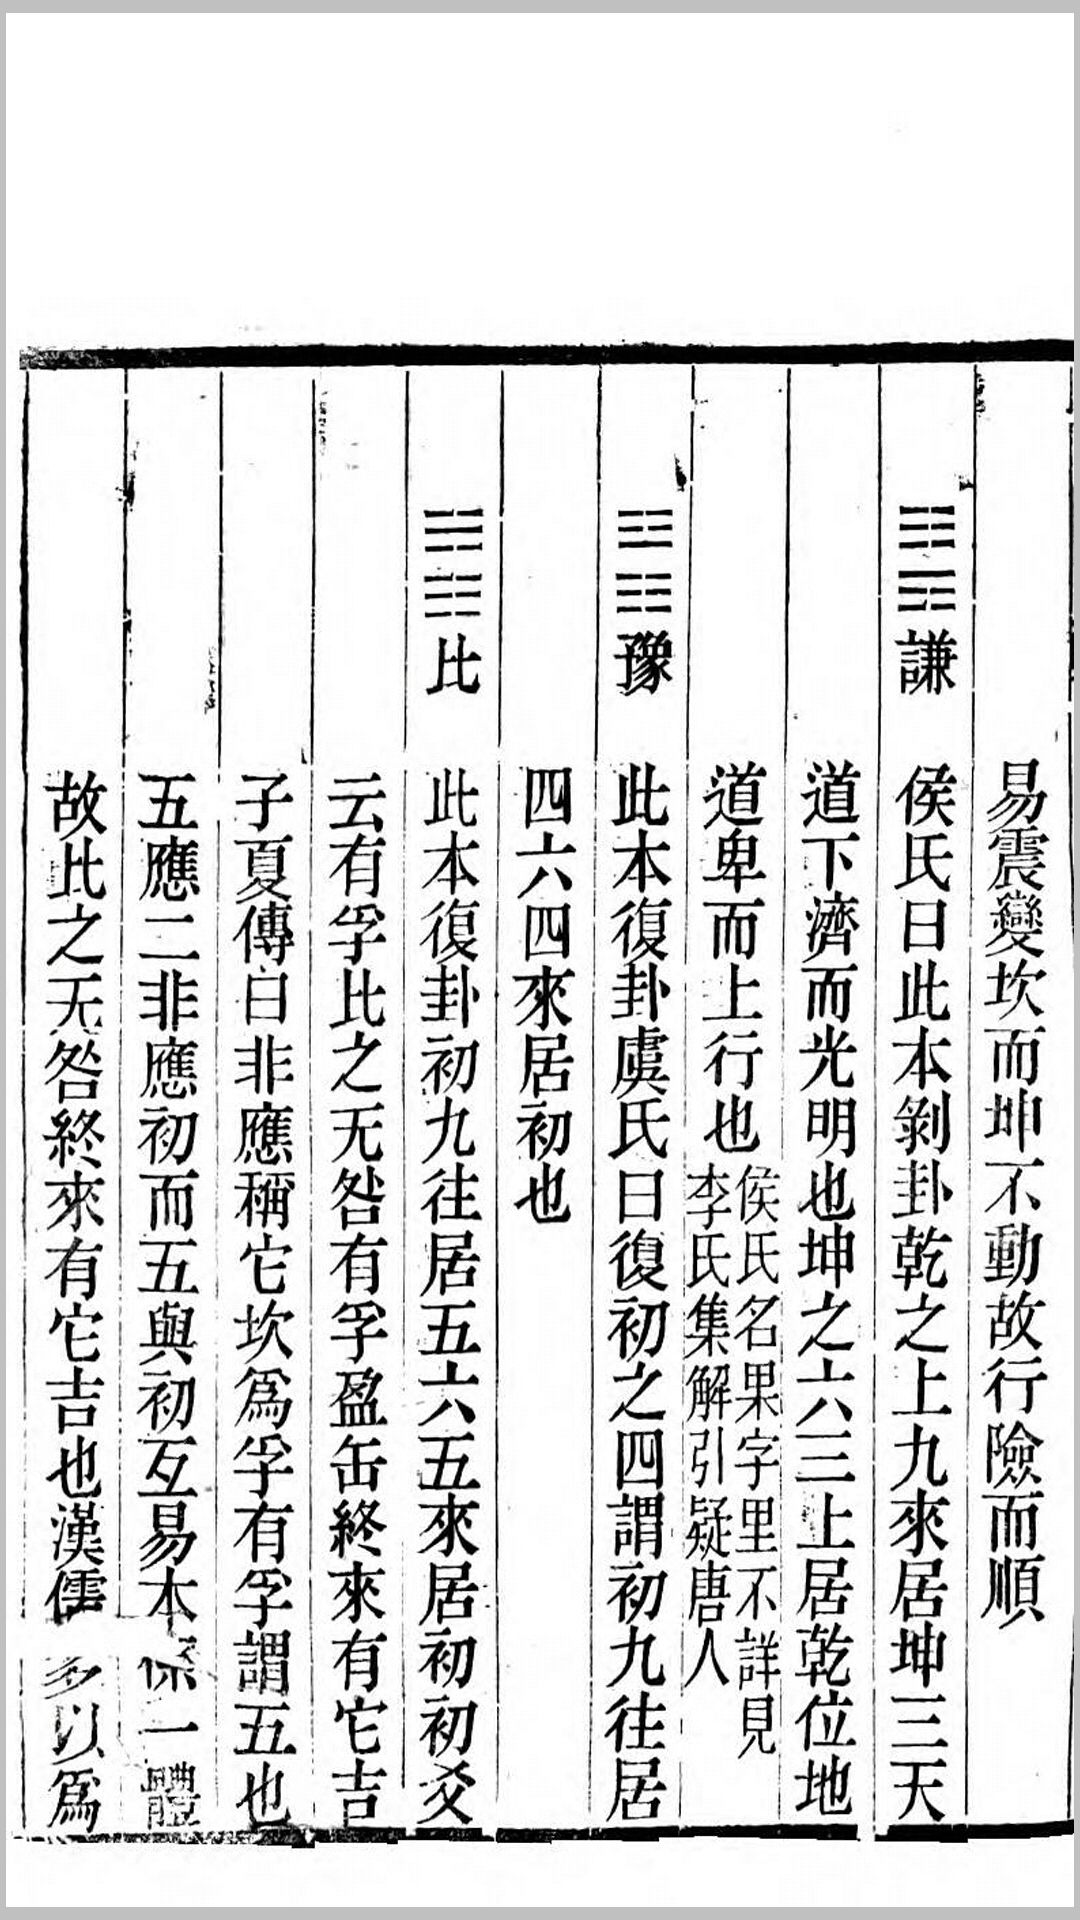 易震變坎而坤不動故行險而順
䷎謙 侯氏曰此本剝卦乾之上九來居坤三天
道下濟而光明也坤之六三上居乾位地
道卑而上行也侯氏名果字里不詳見
李氏集解引疑唐人
䷏豫 此本復卦虞氏曰復初之四謂初九往居
四六四來居初也
䷇比 此本復卦初九往居五六五來居初初爻
云有孚比之无咎有孚盈缶終來有它吉
子夏傳曰非應稱它坎為孚有孚謂五也
五應二非應初而五與初互易本係一體
故比之无咎終來有它吉也漢儒多以為